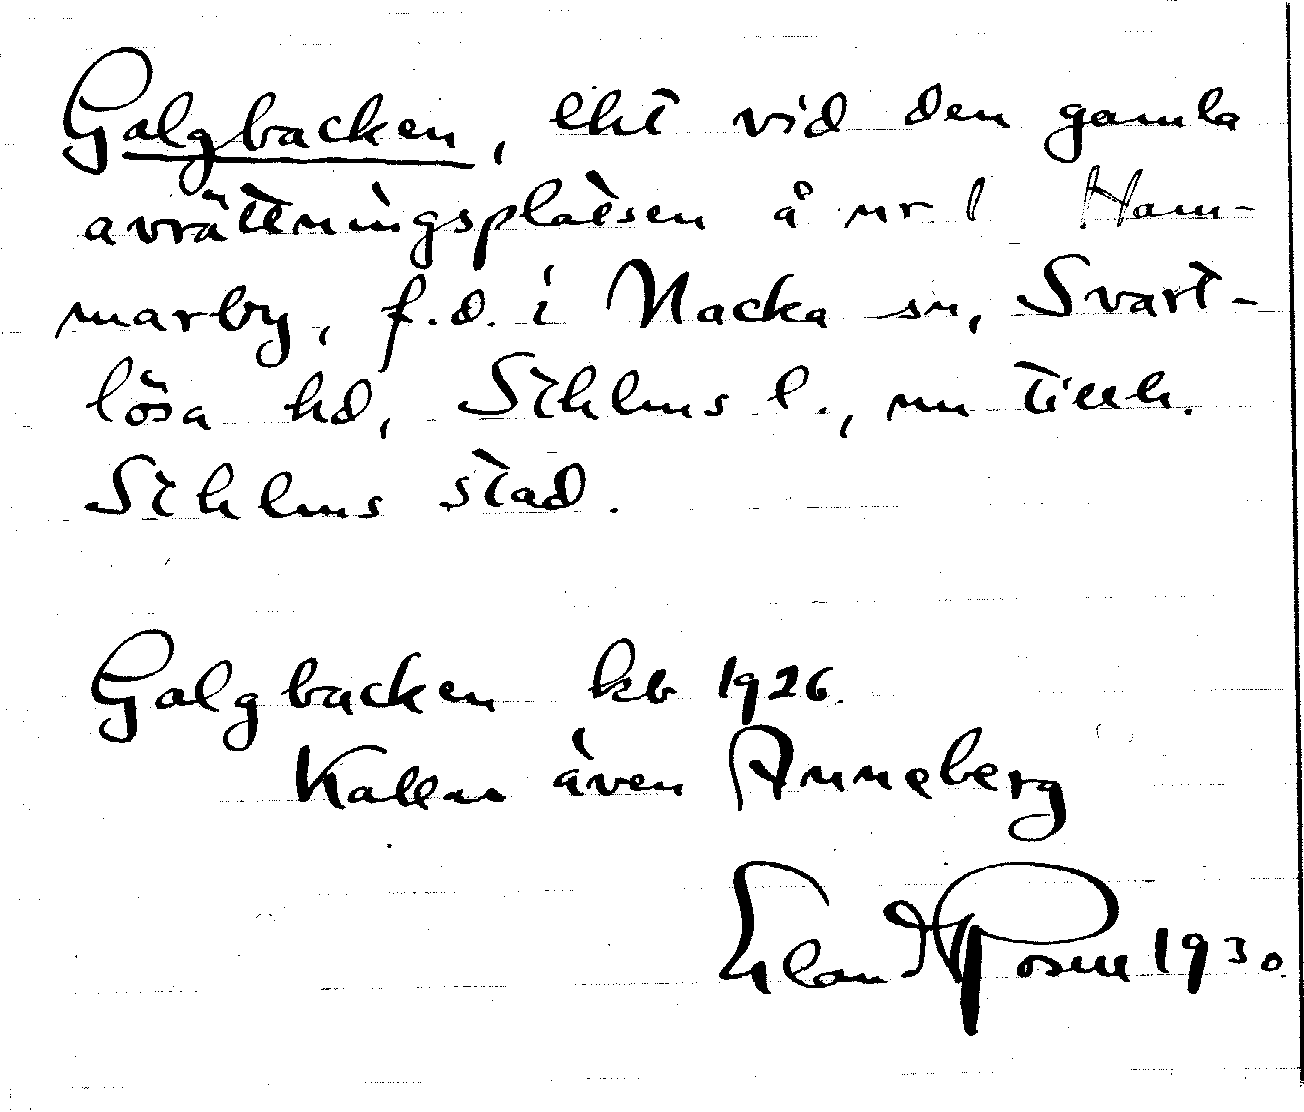 Galgbacken, lht vid den gamla
avrättningsplatsen å nr 1 Ham-
marby, f.d. i Nacka sn, Svart-
lösa hd, Sthlms l., nu tillh.
Sthlms stad.
Galgbacken kb 1926.
Kallas även Anneberg
Erland Rosell 1930.